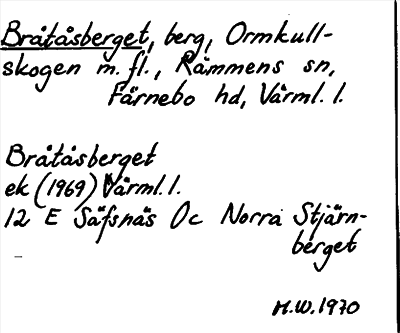 Bråtåsberget, berg, Ormkull-
skogen m. fl., Rämmens sn,
Färnebo hd, Värml. l.
Bråtåsberget
ek (1969) Värml. l.
12 E Säfsnäs Oc Norra Stjärn-
berget
M.W. 1970